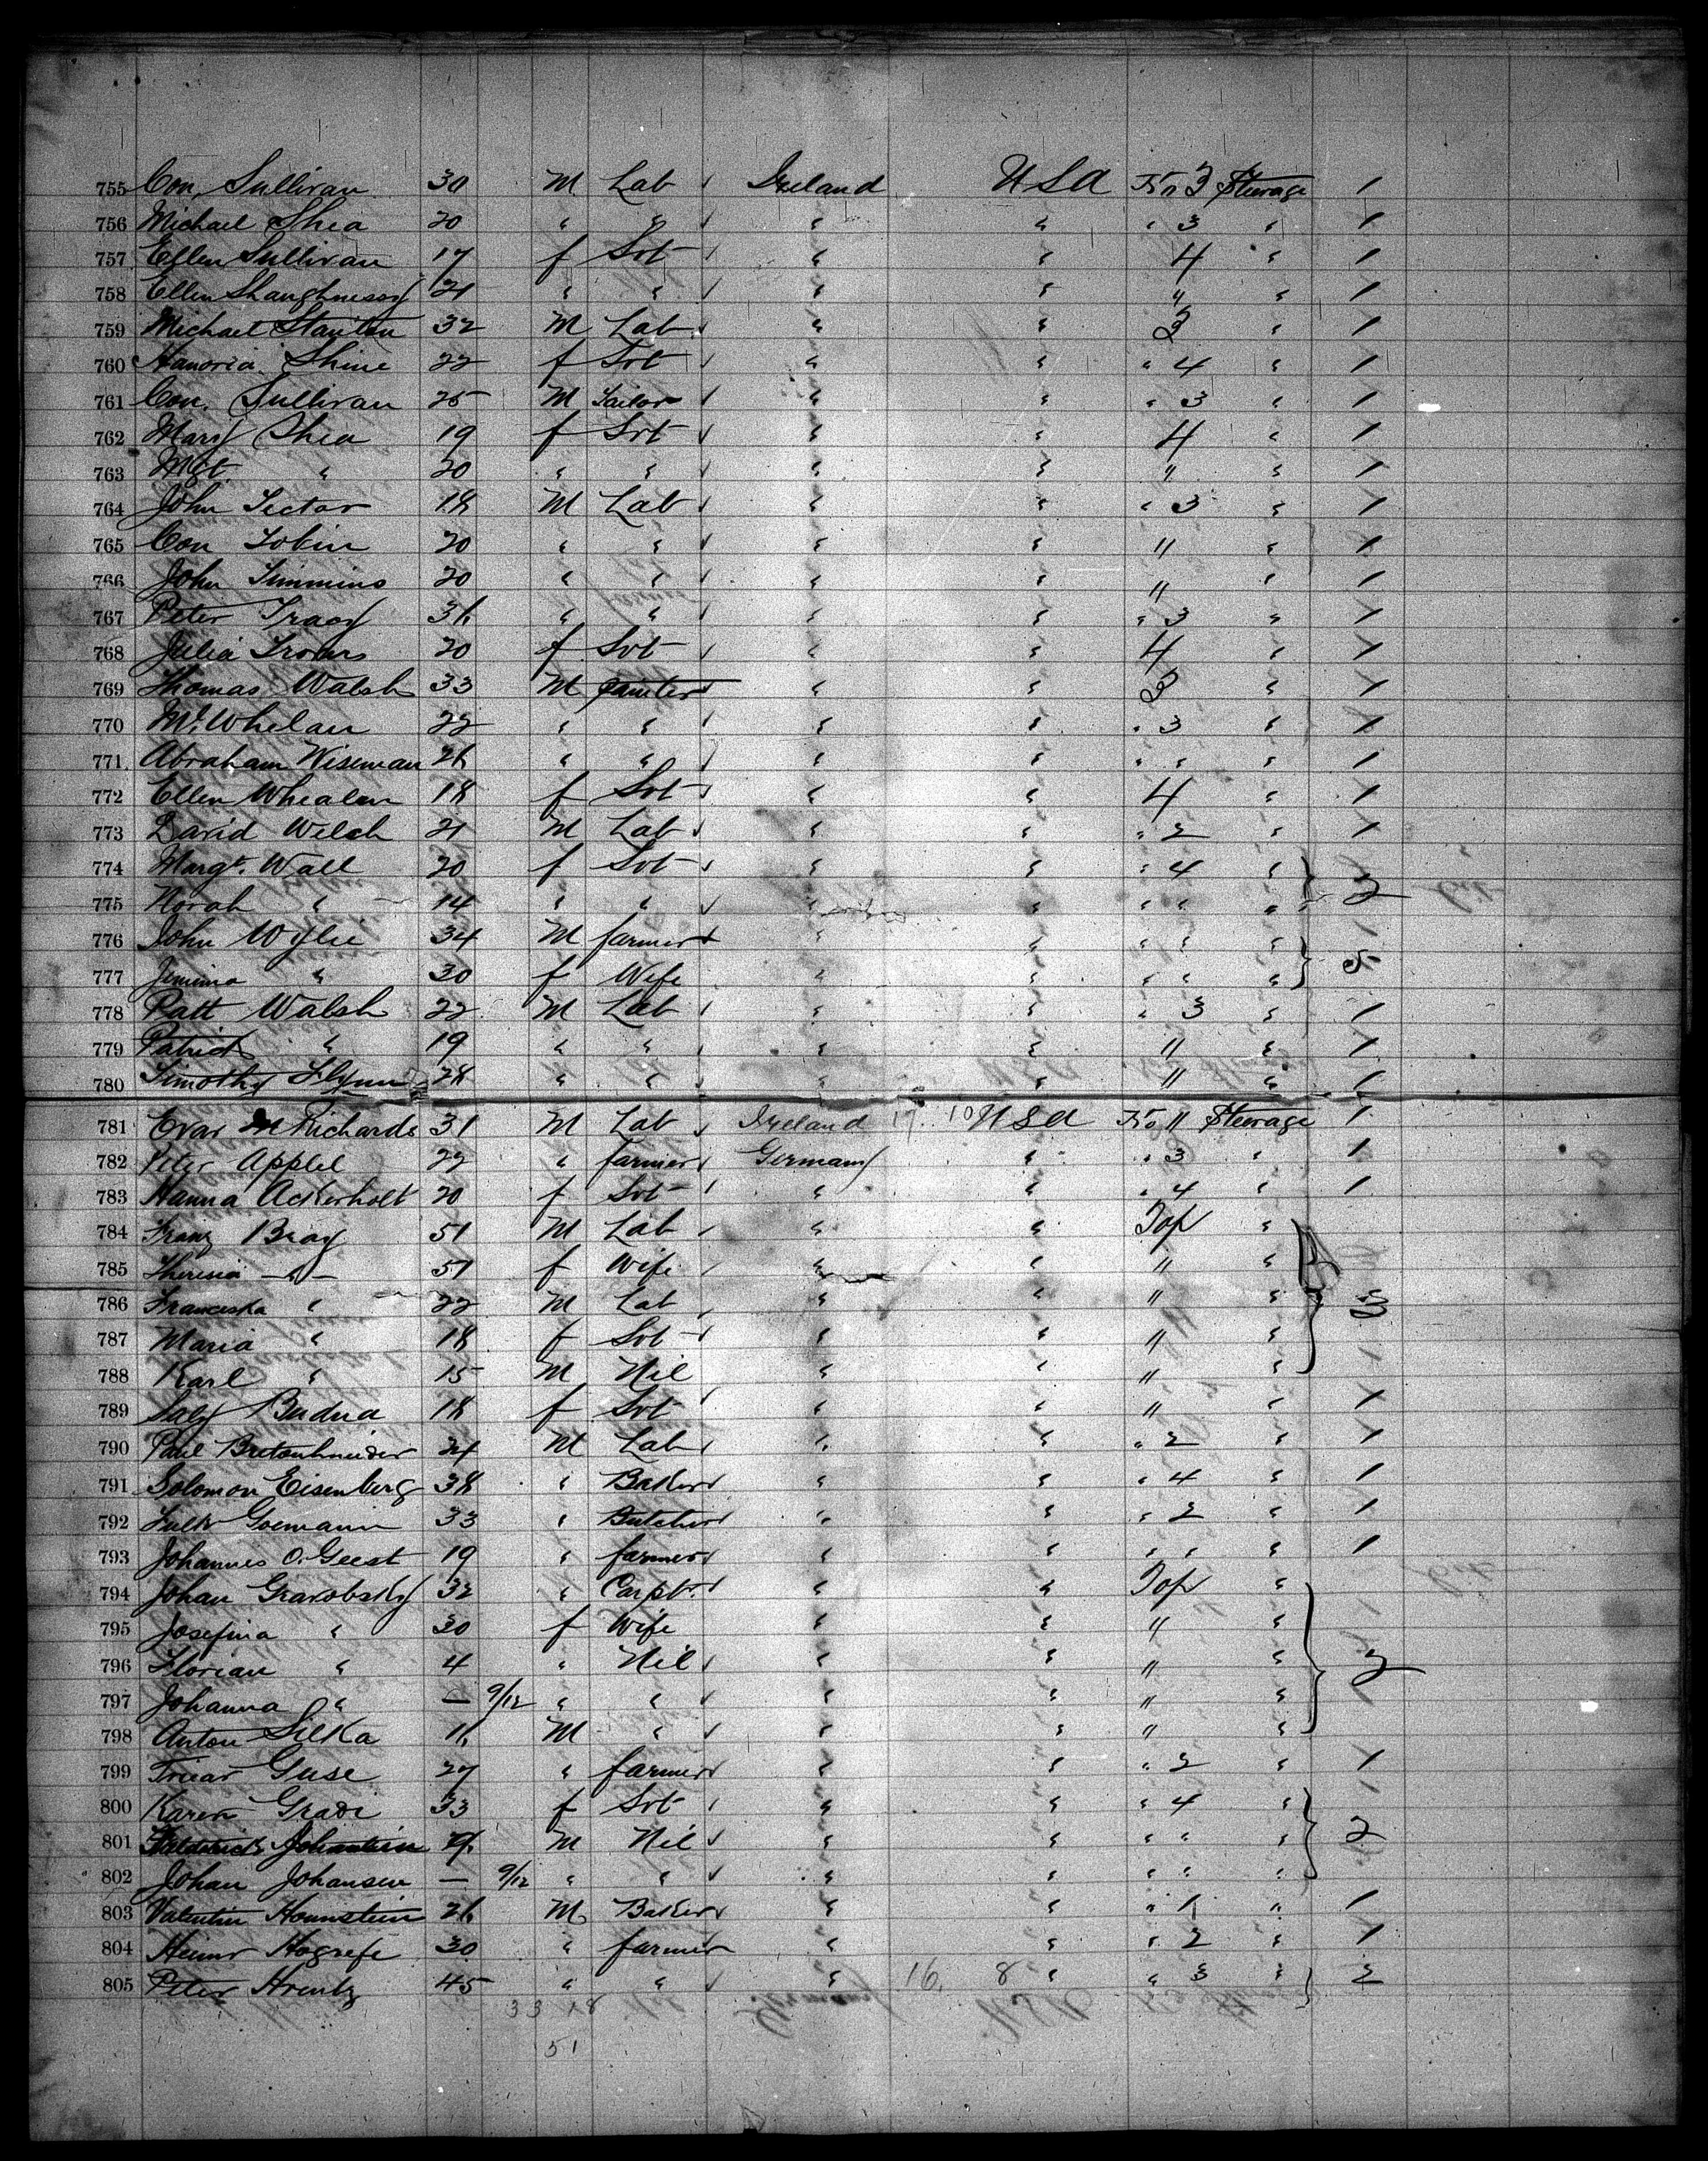 755 Con. Sullivan 30 M Lab Ireland USA No 3 Steerage 1
756 Michael Shea 20 " " " " " 3 " 1
757 Ellen Sullivan 17 f Svt " " 4 " 1
758 Ellen Shaughnessy 21 " " " " " " 1
759 Michael Stanton 32 M Lab " " 3 " 1
760 Hanoria Shine 22 f Svt " " " 4 " 1
761 Con. Sullivan 25 M Tailor " " " 3 " 1
762 Mary Shea 19 f Svt " " 4 " 1
763 Mgt. " 20 " " " " " " 1
764 John Tector 18 M Lab " " " 3 " 1
765 Con Tobin 20 " " " " " " 1
766 John Timmins 20 " " " " " " 1
767 Peter Tracy 36 " " " " " 3 " 1
768 Julia 20 f Svt " " 4 " 1
769 Thomas Walsh 33 M painter " " 3 " 1
770 Whelan 22 " " " " " 3 " 1
771 Abraham Wiseman 26 " " " " " " " 1
772 Ellen Whealan 18 f Svt " " 4 " 1
773 David Welsh 21 M Lab " " " 2 " 1
774 Margt. Wall 20 f Svt " " " 4 " 2
775 Norah " 14 " " " " " " "
776 John Wylie 34 M farmer " " " " "
777 Jemima " 30 f Wife " " " " " 5
778 Patt Walsh 22 M Lab " " " 3 " 1
779 Patrick " 19 " " " " " " 1
780 Timothy Flynn 28 " " " " " " 1
781 Evan M Richards 31 M Lab Ireland 17 10 USA No 11 Steerage 1
782 Peter Applel 22 " farmer Germany " " 3 " 1
783 Hanna Ackerholt 20 f Svt " " " 4 " 1
784 Franz Bray 51 M Lab " " Top "
785 Theresia " 51 f Wife " " " "
786 Franceska " 22 M Lab " " " "
787 Maria " 18 f Svt " " " "
788 Karl " 15 M Nil " " " "
789 Saly Budna 18 f Svt " " " " 1
790 Paul 24 M Lab " " " 2 " 1
791 Solomon Eisenberg 38 " Baker " " " 4 " 1
792 Goemann 33 " Butcher " " " 2 " 1
793 Johannes O. Geest 19 " farmer " " " " " 1
794 Johan Grarobsky 32 " Carptr. " " Top "
795 Josefina " 30 f Wife " " " "
796 Florian " 4 " Nil " " " " 3
797 Johanna " — 9/12 " " " " " "
798 Anton Silka 11 M " " " " "
799 Guse 27 " farmer " " " 2 " 1
800 Karen Grade 33 f Svt " " " 4 "
801 M Nil " " " " " 2
802 Johan Johansen — 9/12 " " " " " " "
803 Valentin Hounstein 26 M Baker " " " 1 " 1
804 Hogrefe 30 " farmer " " " 2 " 1
805 Peter 45 " " " 16. 8 " " 3 " 2
33 18
51